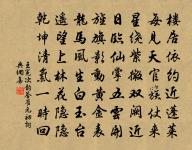 樓居依約近蓬萊
每見天官簇仗來
星繞紫微雙闕近
日臨仙掌五雲開
旌旗影動黃金表
龍馬風生白玉臺
遙望上林花隱隱
乾坤清氣一時回